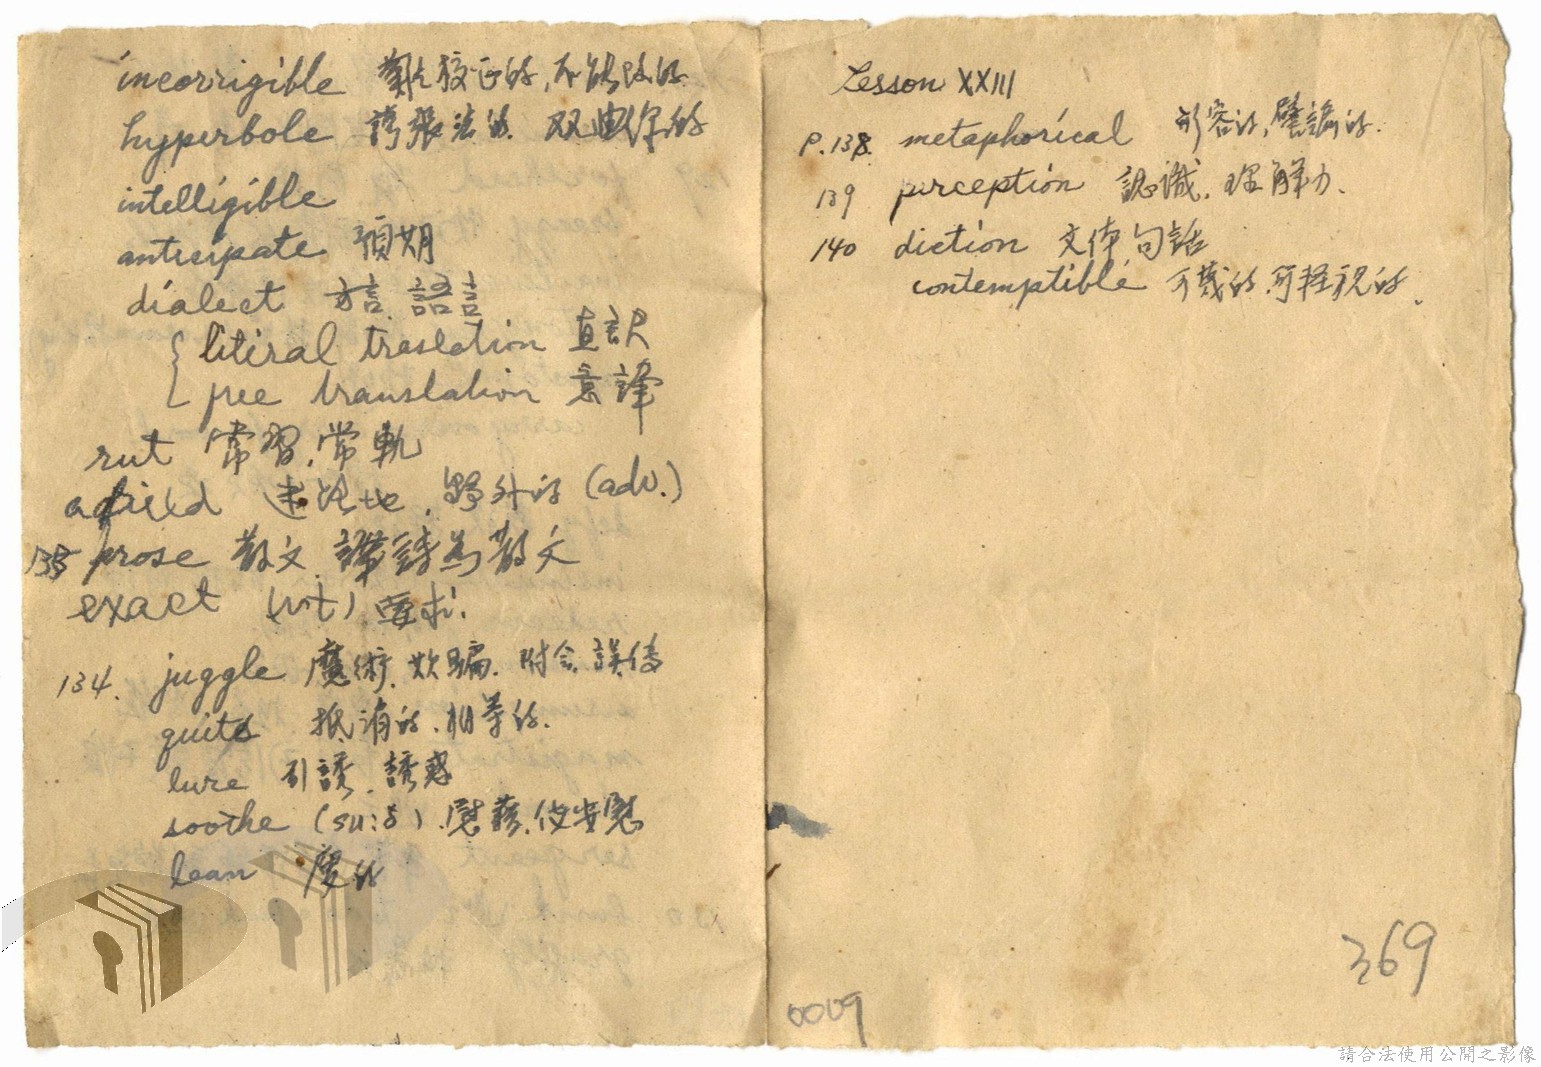 incorrigible 難校正的,不能改的
hyperbole 誇張法的. 双曲線的
intelligible
anticipate 預期
dialect 方言. 語言
litiral traslation 直訳
free translation 意譯
rut 常習,常軌
afield 野外的 (adv.)
133 prose 散文. 譯詩為散文
exact (vt) 要求.
134. juggle 魔術. 欺騙. 附會.
quits 抵消的.相等的.
lure 引誘.誘惑
soothe (su:ð) .慰藉.使安慰
lean 瘦的
Lesson XXIII
P.138. metaphorical 形容的,譬諭的.
139 perception 認識. 理解力.
140 diction 文体 句話
contemptible 可蔑的.可軽視的.
369
0009
請合法使用公開之影像